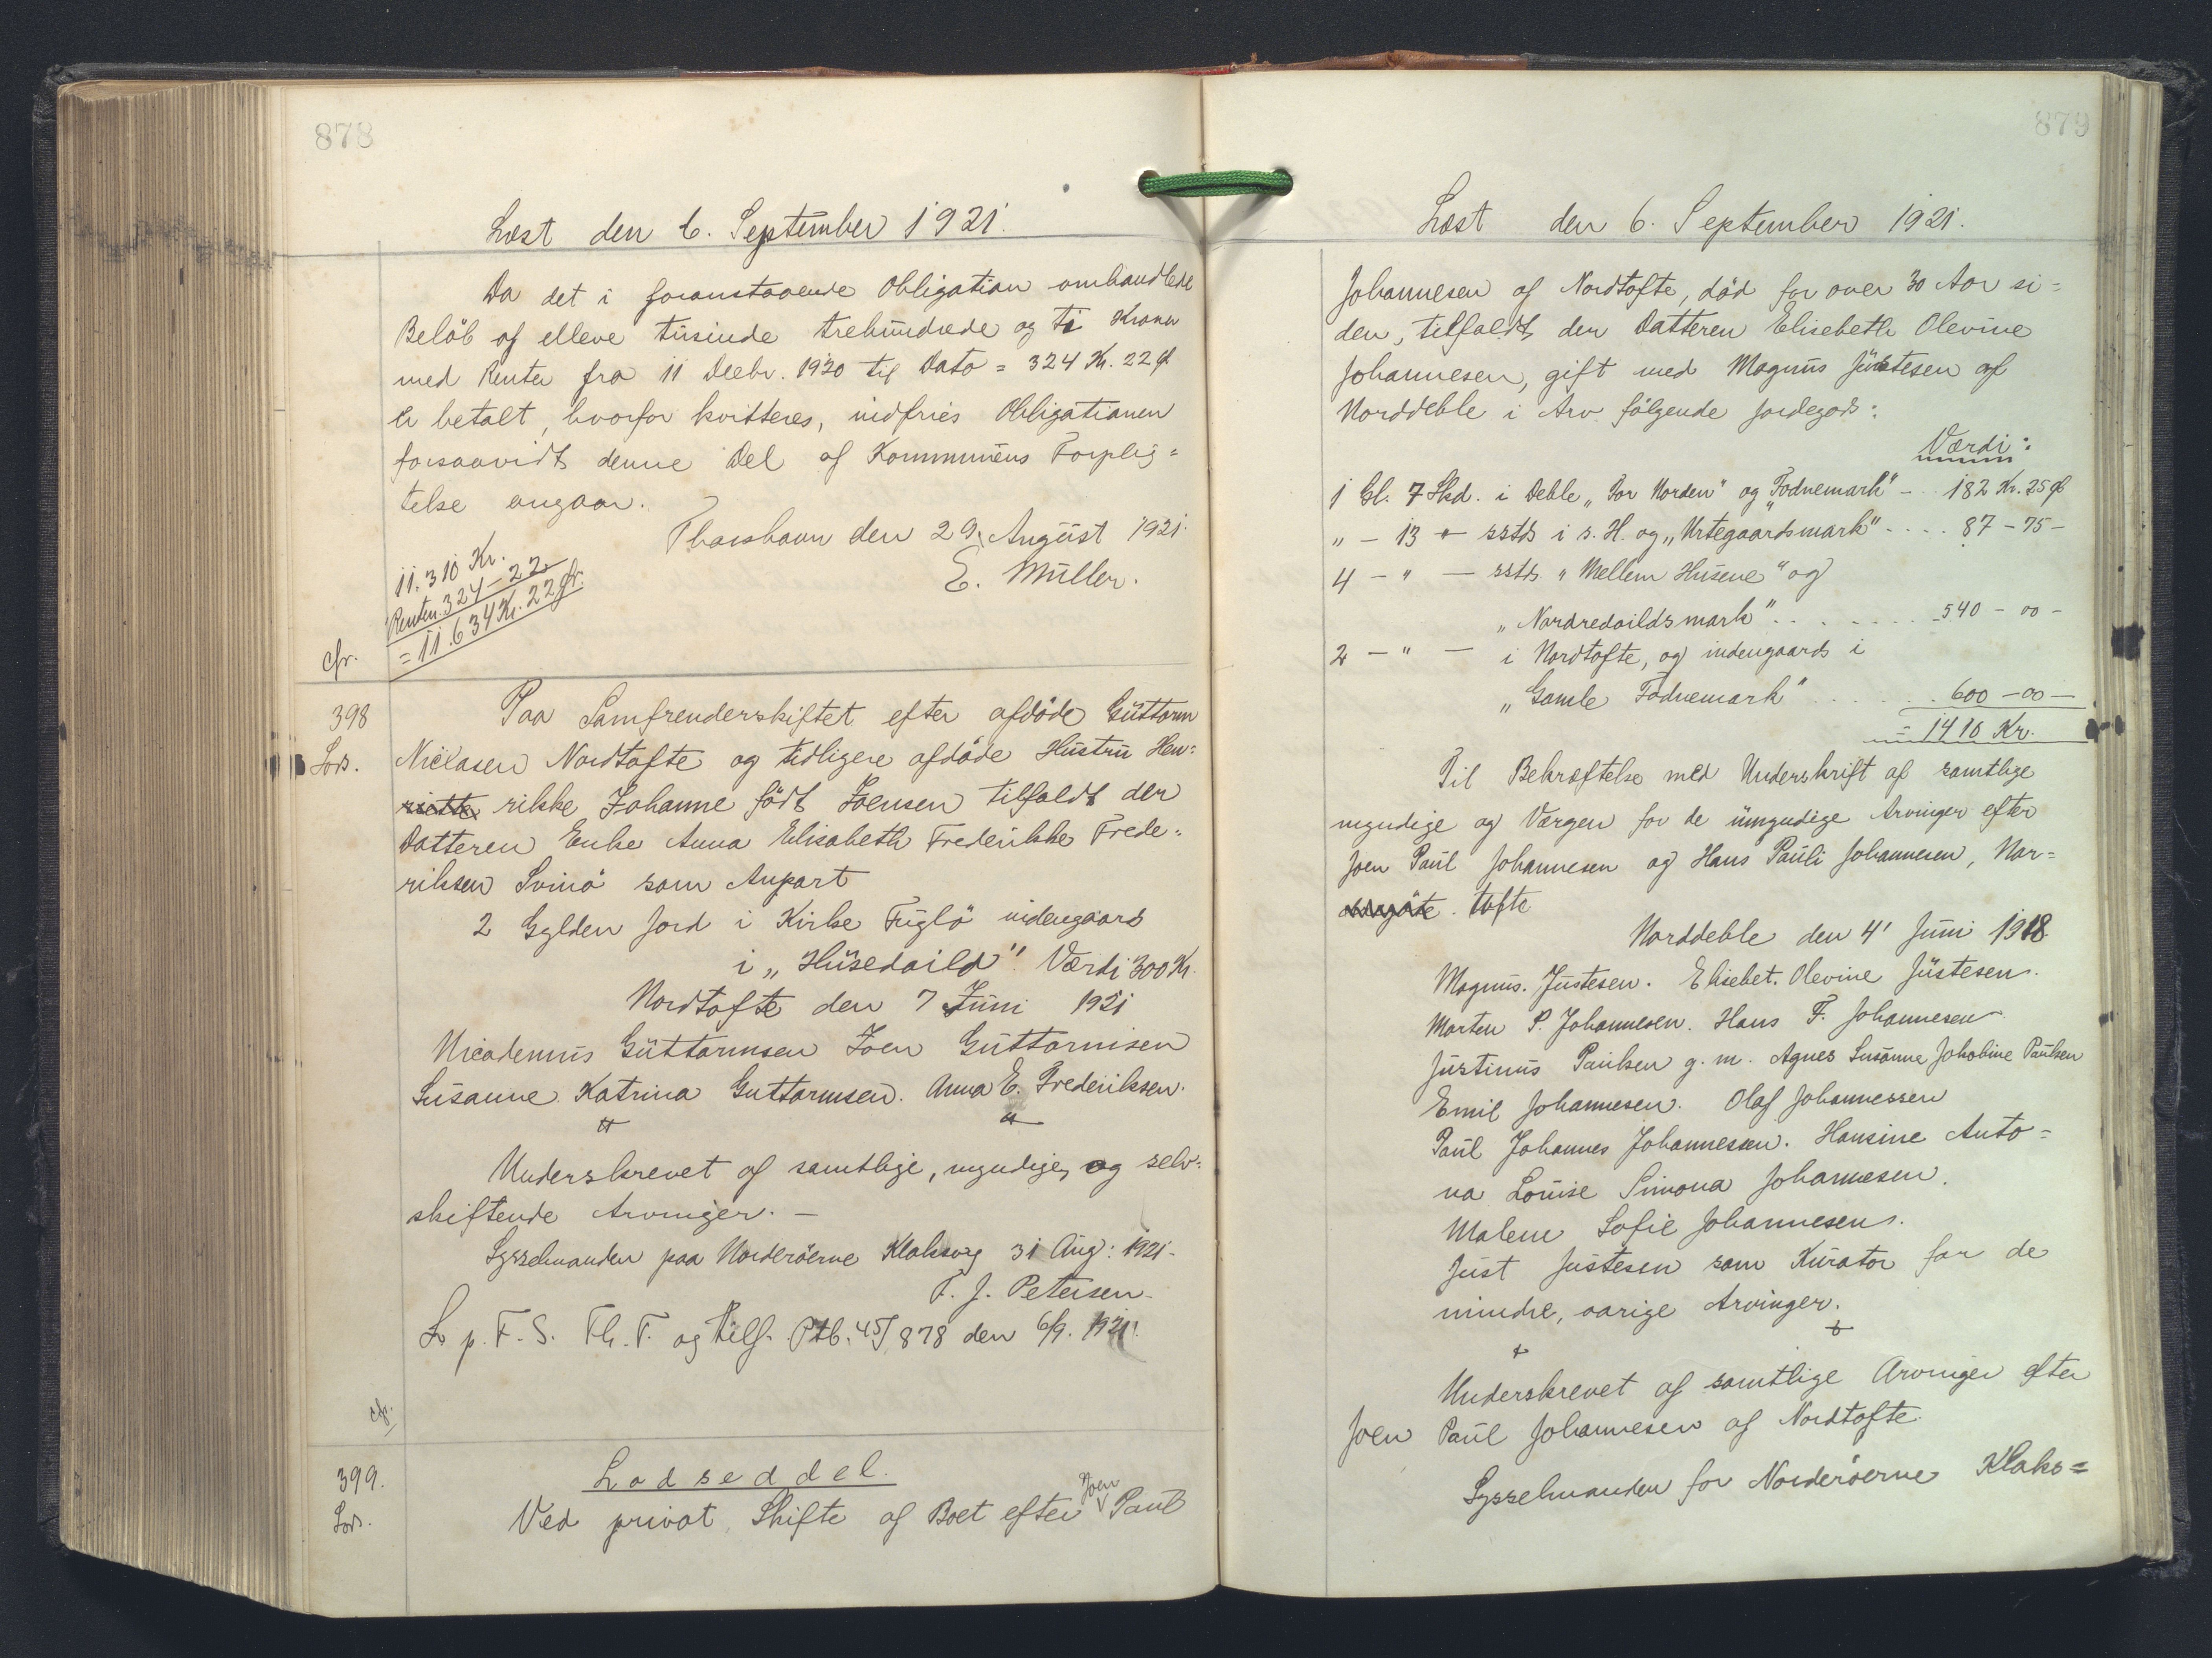 878
Læst den 6. September 1921.
Da det i foranstaaende Obligation omhandlede
Beløb af elleve tusinde trehundrede og ti Kroner
med Renter fra 11 Decbr. 1920 til Dato = 324 Kr. 22 Ø
er betalt, hvorfor kvitteres, udfries Obligationen
forsaavidt denne Del af Kommunens Forplig=
telse angaar.
Thorshavn den 29. August 1921.
E. Müller.
11.310 Kr.
Renter. 324 - 22
= 11.634 Kr. 22 Ø.
cfr.
398
Lods.
Paa Samfrenderskiftet efter afdøde Guttorm
Niclasen Nordtofte og tidligere afdøde Hustru Hen=
riette rikke Johanne født Joensen tilfaldt der
Datteren Enke Anna Elisabeth Frederikke Frede=
riksen Svinø som Anpart
2 Gylden Jord i Kirke Fuglø indengaards
i „Húsedaild". Værdi 300 Kr.
Nordtofte den 7 Juni 1921
Nicodemus Guttormsen Joen Guttormsen
Susanne Katrina Guttormsen. Anna E. Frederiksen.
Underskrevet af samtlige, myndige, og selv=
skiftende Arvinger. —
Sysselmanden paa Norderøerne Klaksvig 31 Aug: 1921.
T. J. Petersen.
L. p. F. S. Th. T. og Tilf. Ptb. 45/878 den 6/9. 1921.
cfr.
399.
Lods.
Lodseddel.
Ved privat Skifte af Boet efter Joen Paul
879
Læst den 6. September 1921.
Johannesen af Nordtofte, død for over 30 Aar si=
den, tilfaldt der Datteren Elisebeth Olevine
Johannesen, gift med Magnus Justesen af
Norddeble i Arv følgende Jordegods:
Værdi:
1 Gl. 7 Skd. i Deble „For Norden" og „Todnemark" - 182 Kr. 25 Ø
„ - 13 „ - sstds i s. H. og „Urtegaardsmark" .... 87 - 75 -
4 - „ - sstds „Mellem Husene" og
„Nordredaildsmark" ....... 540 - 00 -
2 - „ - i Nordtofte, og indengaards i
„Gamle Todnemark" ...... 600 - 00 -
= 1410 Kr.
Til Bekræftelse med Underskrift af samtlige
myndige og Værgen for de umyndige Arvinger efter
Joen Paul Johannesen og Hans Pauli Johannesen, Nor=
tofte
Norddeble den 4' Juni 1918
Magnus. Justesen. Elisebet. Olevine Justesen.
Morten P. Johannesen. Hans F. Johannesen
Justinus Paulsen g. m. Agnes Susanne Jakobine Paulsen
Emil Johannesen. Olaf Johannessen
Paul Johannes Johannesen. Hansine Anto=
na Louise Simona Johannesen.
Malene Sofie Johannesen.
Just Justesen som Kurator for de
mindre, aarige Arvinger.
Underskrevet af samtlige Arvinger efter
Joen Paul Johannesen af Nordtofte.
Sysselmanden for Norderøerne Klaks=